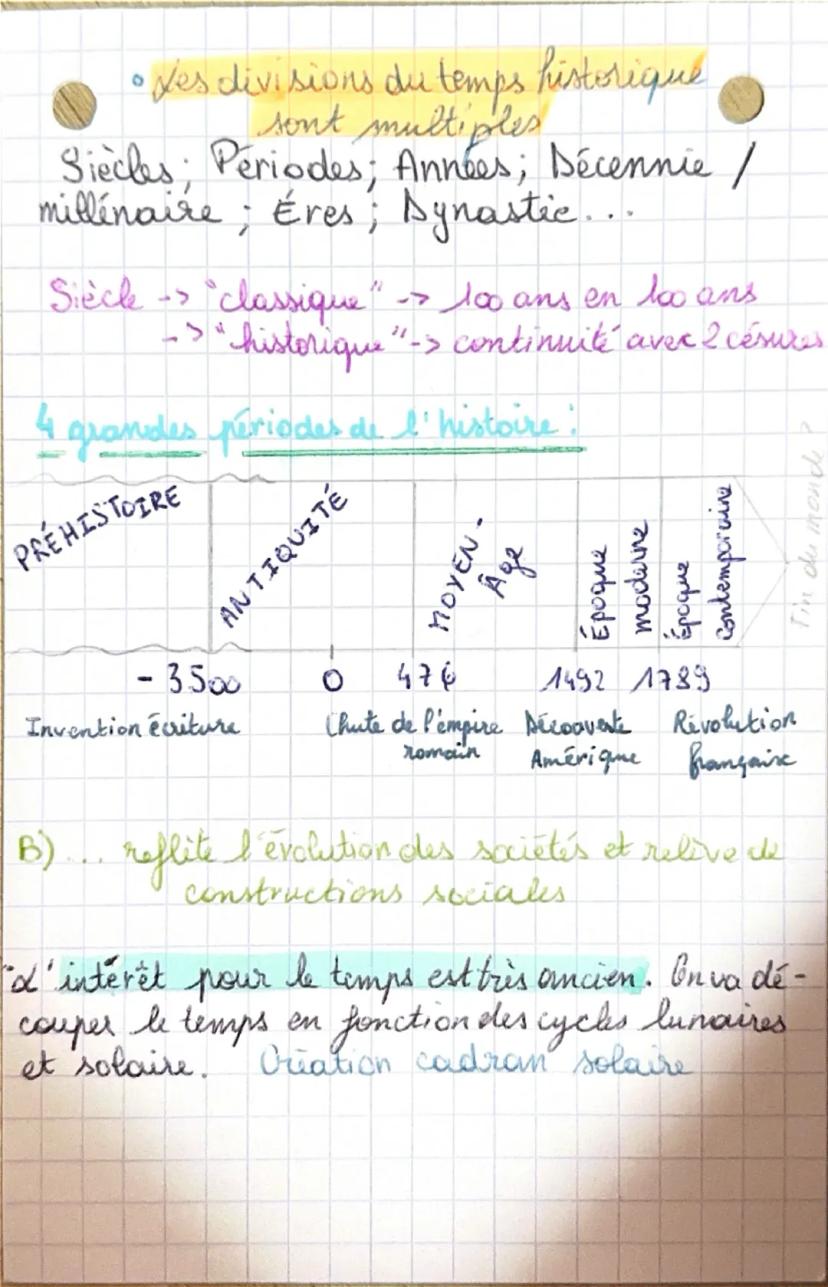 • Les divisions du temps historique
sont multiples
Siècles ; Périodes ; Années ; Décennie /
millénaire ; Éres ; Dynastie...
Siècle -> "classique" -> 100 ans en 100 ans
-> "historique" -> continuité avec 2 césures
4 grandes périodes de l'histoire :
PRÉHISTOIRE
ANTIQUITÉ
MOYEN-
Âge
Époque
moderne
Époque
contemporaine
Fin du monde ?
- 3500 0 476 1492 1789
Invention écriture Chute de l'empire Découverte Révolution
romain Amérique française
B) ... reflète l'évolution des sociétés et relève de
constructions sociales
L'intérêt pour le temps est très ancien. On va dé-
couper le temps en fonction des cycles lunaires
et solaire. Création cadran solaire